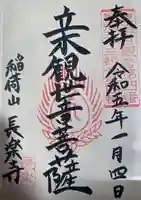 奉拝 令和五年一月四日
立木観世音菩薩
稲荷山 長楽寺